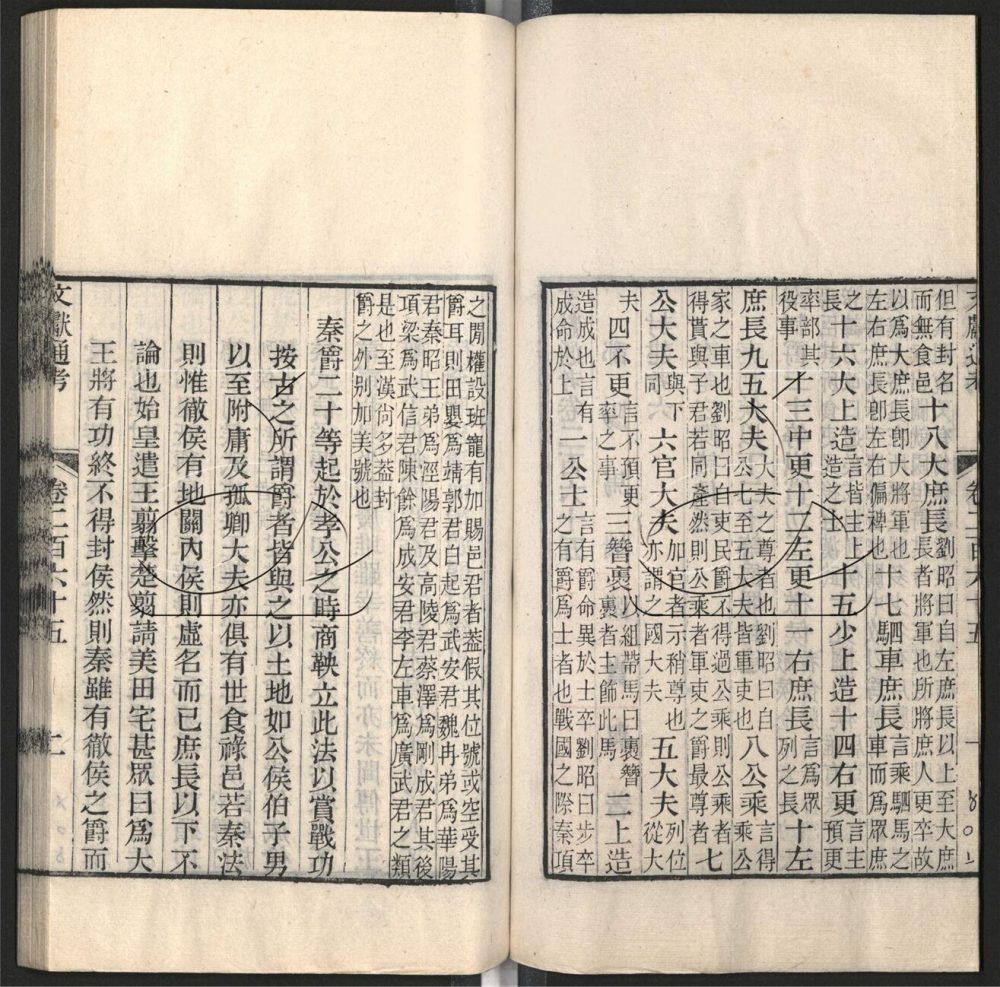 文獻通考 卷二百六十五 一
但有封名而無食邑十八大庶長劉昭曰自左庶長以上至大庶長者將軍也所將庶人更卒故
以爲大庶長卽大將軍也左右庶長卽左右偏裨也十七駟車庶長言乘駟馬之車而爲眾庶
之長十六大上造言皆主上造之士十五少上造十四右更言主預更
卒部其役事十三中更十二左更十一右庶長言爲眾列之長十左
庶長九五大夫大夫之尊者也劉昭曰自公七至五大夫皆軍吏也八公乘言得乘公
家之車也劉昭曰自吏民爵不得過公乘則公乘者得貰與子君若同產然則公乘者軍吏之爵最尊者七
公大夫與下同六官大夫加官者示稍尊也亦謂之國大夫五大夫列位從大
夫四不更言不預更卒之事三簪褭以組帶馬曰褭簪褭者主飾此馬二上造
造成也言有成命於上一公士言有爵命異於士卒劉昭曰步卒之有爵爲士者也戰國之際秦項
之閒權設班寵有加賜邑君者葢假其位號或空受其爵耳則田嬰爲靖郭君白起爲武安君魏冉弟爲華陽
君秦昭王弟爲涇陽君及高陵君蔡澤爲剛成君其後項梁爲武信君陳餘爲成安君李左車爲廣武君之類
是也至漢尙多葢封爵之外别加美號也
秦爵二十等起於孝公之時商鞅立此法以賞戰功
按古之所謂爵者皆與之以土地如公侯伯子男
以至附庸及孤卿大夫亦俱有世食祿邑若秦法
則惟徹侯有地關內侯則虛名而已庶長以下不
論也始皇遣王翦擊楚翦請美田宅甚眾曰爲大
王將有功終不得封侯然則秦雖有徹侯之爵而
文獻通考 卷二百六十五 二